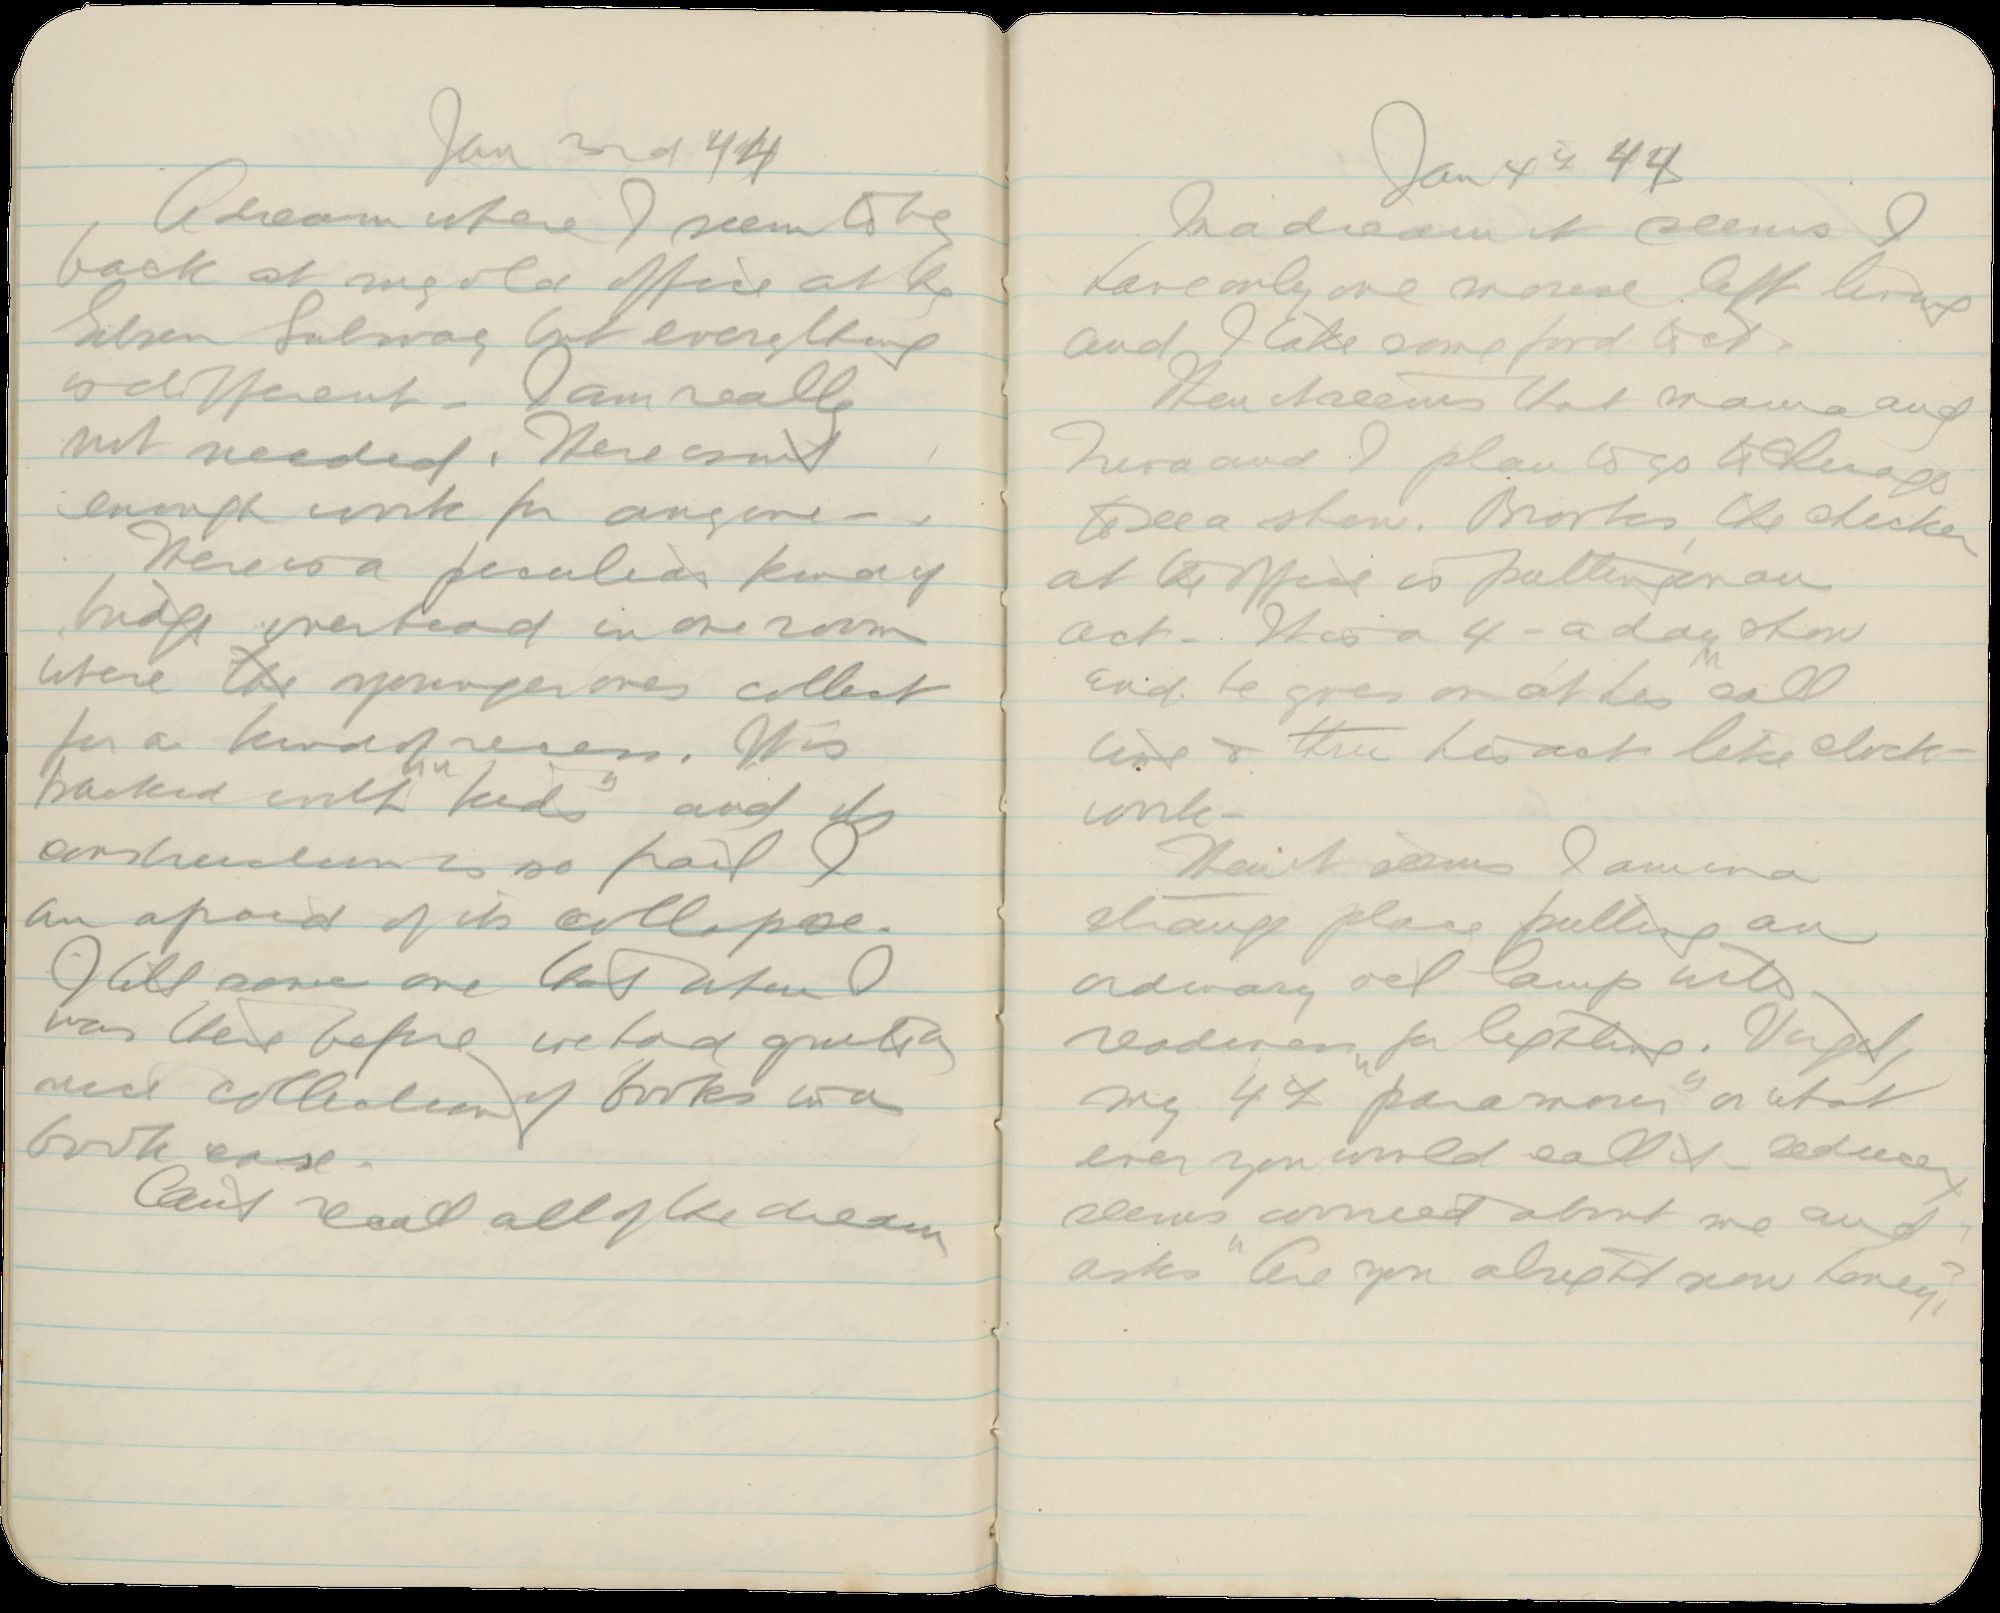 Jan 3rd 44
A dream where I seem to be
back at my old office at the
Subway but everything
is different - I am really
not needed. There isn't
enough work for anyone -
There is a peculiar kind of
bridge overhead in one room
where the younger ones collect
for a kind of recess. It is
packed with "kids" and its
construction is so frail I
am afraid of its collapse.
I tell some one that when I
was there before, we had quite a
nice collection of books in a
book case.
Can't recall all of the dream
Jan 4th 44
In a dream it seems I
have only one mouse left living
and I take some food to it.
Then it seems that mama and
and I plan to go to Chicago
to see a show. Brooks, the checker
at the office is putting on an
act - It is a 4-a day show
and he goes on at his "call"
time & thru his act like clock-
work -
Then it seems I am in a
strange place putting an
ordinary oil lamp into
readiness for lighting. Virgil,
my 42 "paramour" or what
ever you would call it - seducer,
seems worried about me and
asks "Are you alright now honey?"